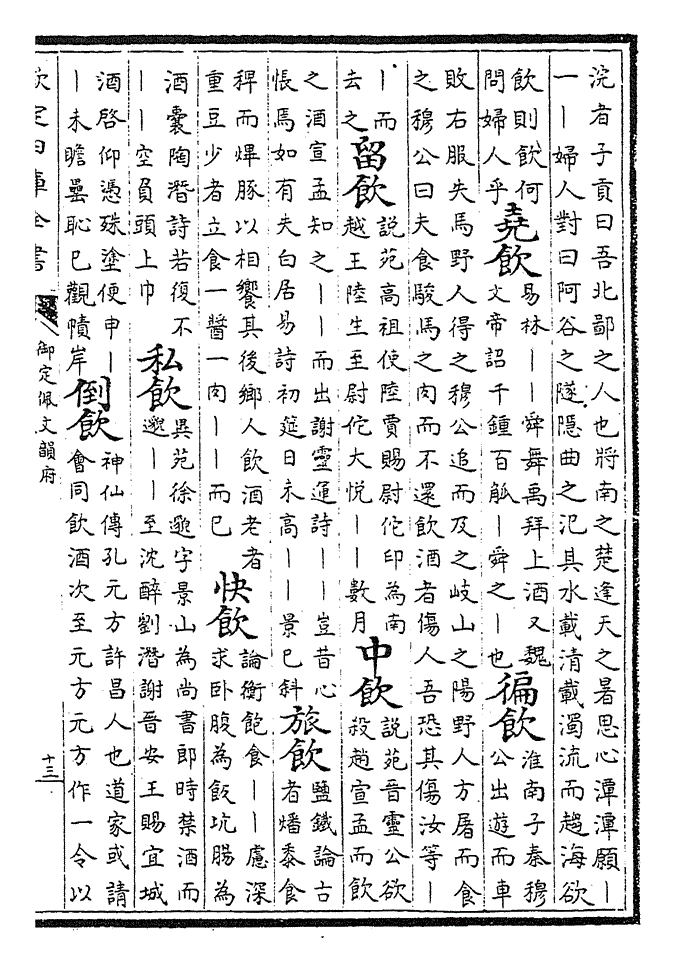 浣者子貢曰吾北鄙之人也將南之楚逢天之暑思心潭潭願丨
一丨婦人對曰阿谷之隧隱曲之汜其水載清載濁流而趨海欲
飲則飲何
問婦人乎
堯飲
易林丨丨舜舞禹拜上酒又魏
文帝詔千鍾百觚丨舜之丨也
徧飲
淮南子秦穆
公出遊而車
敗右服失馬野人得之穆公追而及之岐山之陽野人方屠而食
之穆公曰夫食駿馬之肉而不還飲酒者傷人吾恐其傷汝等丨
丨而
去之
留飲
說苑高祖使陸賈賜尉佗印為南
越王陸生至尉佗大悅丨丨數月
中飲
說苑晉靈公欲
殺趙宣孟而飲
之酒宣孟知之丨丨而出謝靈運詩丨丨豈昔心
悵焉如有夫白居易詩初筵日未高丨丨景已斜
旅飲
鹽鐵論古
者燔黍食
稗而焷豚以相饗其後鄉人飲酒老者
重豆少者立食一醬一肉丨丨而已
快飲
論衡飽食丨丨慮深
求卧腹為飯坑腸為
酒囊陶潛詩若復不
丨丨空負頭上巾
私飲
異苑徐邈字景山為尚書郎時禁酒而
邈丨丨至沈醉劉潛謝晉安王賜宜城
酒啓仰憑殊塗便申丨
丨未瞻罍恥已觀幘岸
倒飲
神仙傳孔元方許昌人也道家或請
會同飲酒次至元方元方作一令以
欽定四庫全書
御定佩文韻府
十三